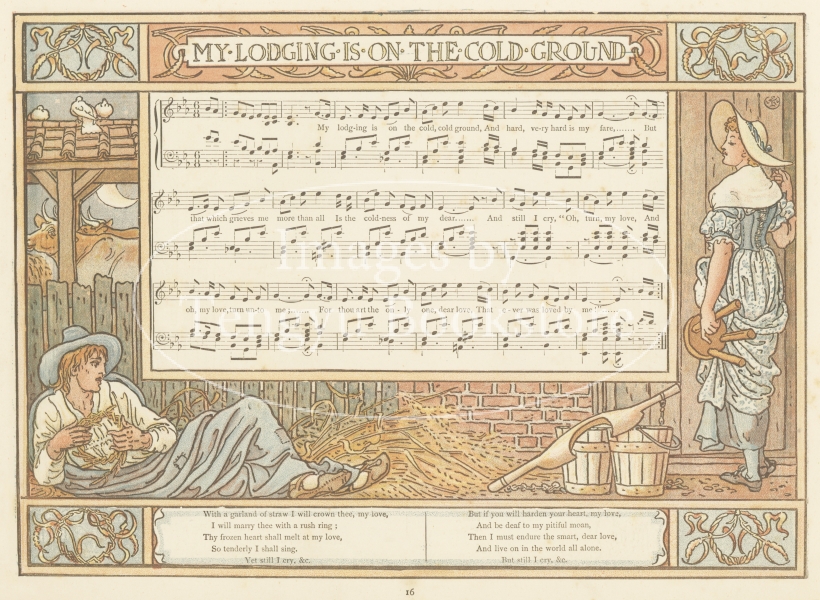 MY·LODGING·IS·ON·THE·COLD·GROUND
My lodg-ing is on the cold, cold ground, And hard, ve-ry hard is my fare,...... But
that which grieves me more than all Is the cold-ness of my dear....... And still I cry, "Oh, turn, my love, And
oh, my love, turn un-to me;...... For thou art the on-ly one, dear love, That e-ver was loved by me!"......
Images by
Tengyn Bookstore
With a garland of straw I will crown thee, my love,
I will marry thee with a rush ring;
Thy frozen heart shall melt at my love,
So tenderly I shall sing,
Yet still I cry, &c.
But if you will harden your heart, my love,
And be deaf to my pitiful moan,
Then I must endure the smart, dear love,
And live on in the world all alone.
But still I cry, &c.
16